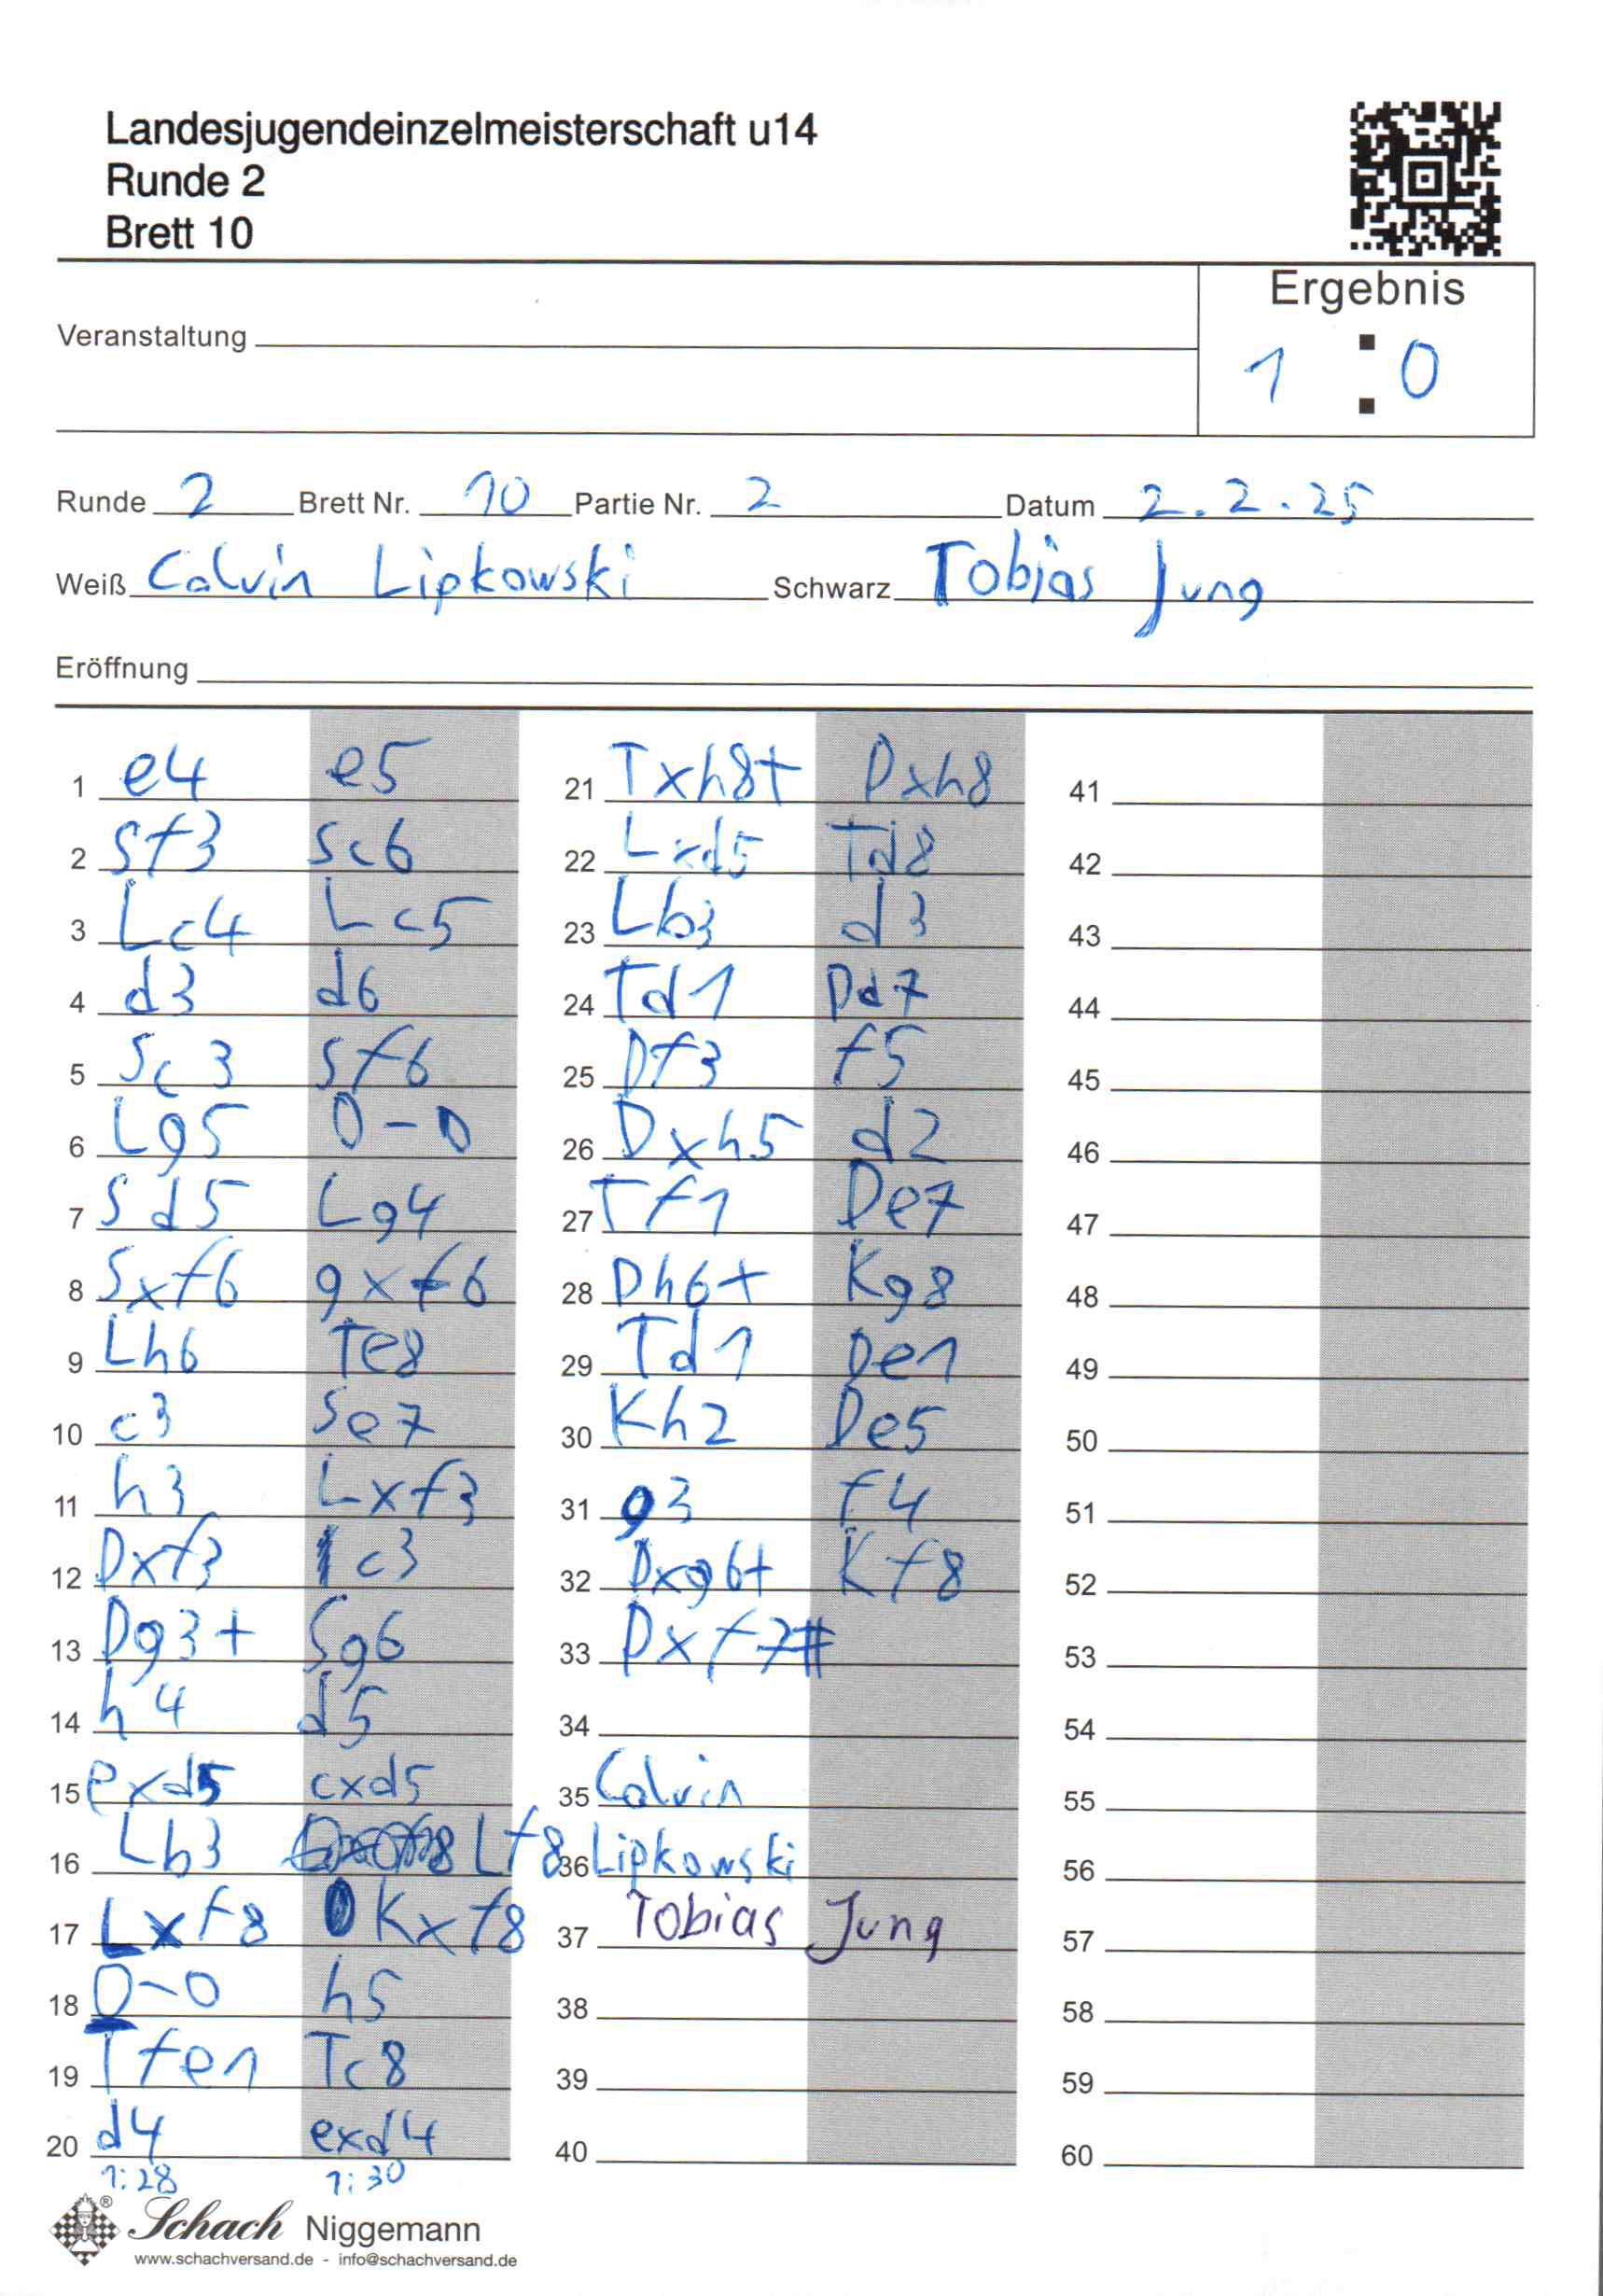 Landesjugendeinzelmeisterschaft u14
Runde 2
Brett 10
Ergebnis
Veranstaltung
1 : 0
Runde 2 Brett Nr. 10 Partie Nr. 2 Datum 2.2.25
Weiß Calvin Lipkowski Schwarz Tobias Jung
Eröffnung
1 e4 e5
2 Sf3 Sc6
3 Lc4 Lc5
4 d3 d6
5 Sc3 Sf6
6 Lg5 0-0
7 Sd5 Lg4
8 Sxf6 gxf6
9 Lh6 Te8
10 c3 Se7
11 h3 Lxf3
12 Dxf3 c3
13 Dg3+ Sg6
14 h4 d5
15 exd5 cxd5
16 Lb3 Lf8
17 Lxf8 Kxf8
18 0-0 h5
19 Tfe1 Tc8
20 d4 exd4
1:28 1:30
21 Txh8+ Dxh8
22 Lxd5 Td8
23 Lb3 d3
24 Td1 Dd7
25 Df3 f5
26 Dxh5 d2
27 Tf1 De7
28 Dh6+ Kg8
29 Td1 De1
30 Kh2 De5
31 g3 f4
32 Dxg6+ Kf8
33 Dxf7#
34
35 Calvin
36 Lipkowski
37 Tobias Jung
38
39
40
41
42
43
44
45
46
47
48
49
50
51
52
53
54
55
56
57
58
59
60
Schach Niggemann
www.schachversand.de - info@schachversand.de